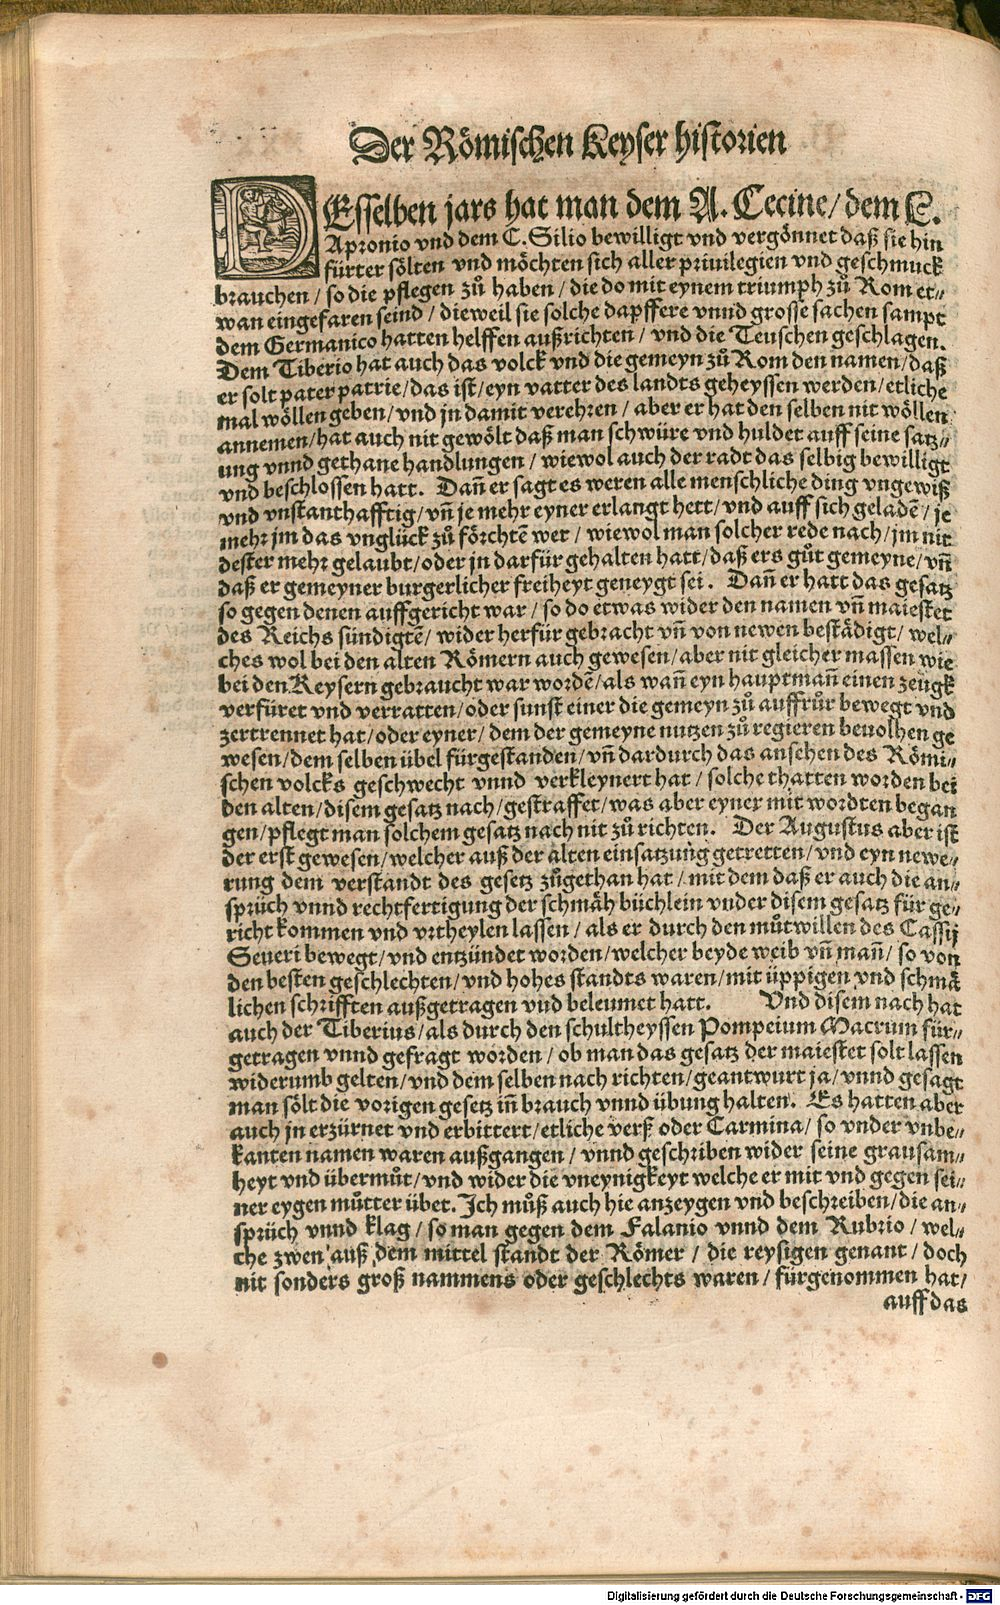 Der Römischen Keyser historien
DEsselben jars hat man dem A. Cecine/ dem L.
Apronio vnd dem C. Silio bewilligt vnd vergönnet daß sie hin
fürter sölten vnd möchten sich aller priuilegien vnd geschmuck
brauchen / so die pflegen zů haben / die do mit eynem triumph zů Rom et⸗
wan eingefaren seind / dieweil sie solche dapffere vnnd grosse sachen sampt
dem Germanico hatten helffen außrichten / vnd die Teuschen geschlagen.
Dem Tiberio hat auch das volck vnd die gemeyn zů Rom den namen/ daß
er solt pater patrie/ das ist/ eyn vatter des landts geheyssen werden/ etliche
mal wöllen geben/ vnd jn damit verehren / aber er hat den selben nit wöllen
annemen/ hat auch nit gewölt daß man schwüre vnd huldet auff seine satz⸗
ung vnnd gethane handlungen / wiewol auch der radt das selbig bewilligt
vnd beschlossen hatt. Dañ er sagt es weren alle menschliche ding vngewiß
vnd vnstanthafftig/ vñ je mehr eyner erlangt hett/ vnd auff sich geladẽ / je
mehr jm das vnglück zů förchtẽ wer / wiewol man solcher rede nach/ jm nit
dester mehr gelaubt/ oder jn darfür gehalten hatt/ daß ers gůt gemeyne/ vñ
daß er gemeyner burgerlicher freiheyt geneygt sei. Dañ er hatt das gesatz
so gegen denen auffgericht war / so do etwas wider den namen vñ maiestet
des Reichs sündigtẽ/ wider herfür gebracht vñ von newen bestädigt/ wel⸗
ches wol bei den alten Römern auch gewesen/ aber nit gleicher massen wie
bei den Keysern gebraucht war wordẽ/ als wañ eyn hauptmañ einen zeugk
verfüret vnd verratten/ oder sunst einer die gemeyn zů auffrůr bewegt vnd
zertrennet hat/ oder eyner/ dem der gemeyne nutzen zů regieren beuolhen ge
wesen/ dem selben übel fürgestanden/ vñ dardurch das ansehen des Römi⸗
schen volcks geschwecht vnnd verkleynert hat / solche thatten worden bei
den alten/ disem gesatz nach/ gestraffet/ was aber eyner mit wordten began
gen/ pflegt man solchem gesatz nach nit zů richten. Der Augustus aber ist
der erst gewesen/ welcher auß der alten einsatzung getretten/ vnd eyn newe⸗
rung dem verstandt des gesetz zůgethan hat / mit dem daß er auch die an⸗
sprüch vnnd rechtfertigung der schmäh büchlein vnder disem gesatz für ge⸗
richt kommen vnd vrtheylen lassen / als er durch den můtwillen des Cassij
Seueri bewegt/ vnd entzündet worden/ welcher beyde weib vñ mañ/ so von
den besten geschlechten/ vnd hohes standts waren/ mit üppigen vnd schmä
lichen schrifften außgetragen vnd beleumet hatt. Vnd disem nach hat
auch der Tiberius/ als durch den schultheyssen Pompeium Macrum für⸗
getragen vnnd gefragt worden / ob man das gesatz der maiestet solt lassen
widerumb gelten/ vnd dem selben nach richten/ geantwurt ja/ vnnd gesagt
man sölt die vorigen gesetz iñ brauch vnnd übung halten. Es hatten aber
auch jn erzürnet vnd erbittert/ etliche verß oder Carmina/ so vnder vnbe⸗
kanten namen waren außgangen / vnnd geschriben wider seine grausam⸗
heyt vnd übermůt/ vnd wider die vneynigkeyt welche er mit vnd gegen sei⸗
ner eygen můtter übet. Ich můß auch hie anzeygen vnd beschreiben/ die an⸗
sprüch vnnd klag / so man gegen dem Falanio vnnd dem Rubrio / wel⸗
che zwen auß dem mittel standt der Römer / die reysigen genant / doch
nit sonders groß nammens oder geschlechts waren / fürgenommen hat/
auff das
Digitalisierung gefördert durch die Deutsche Forschungsgemeinschaft - DFG